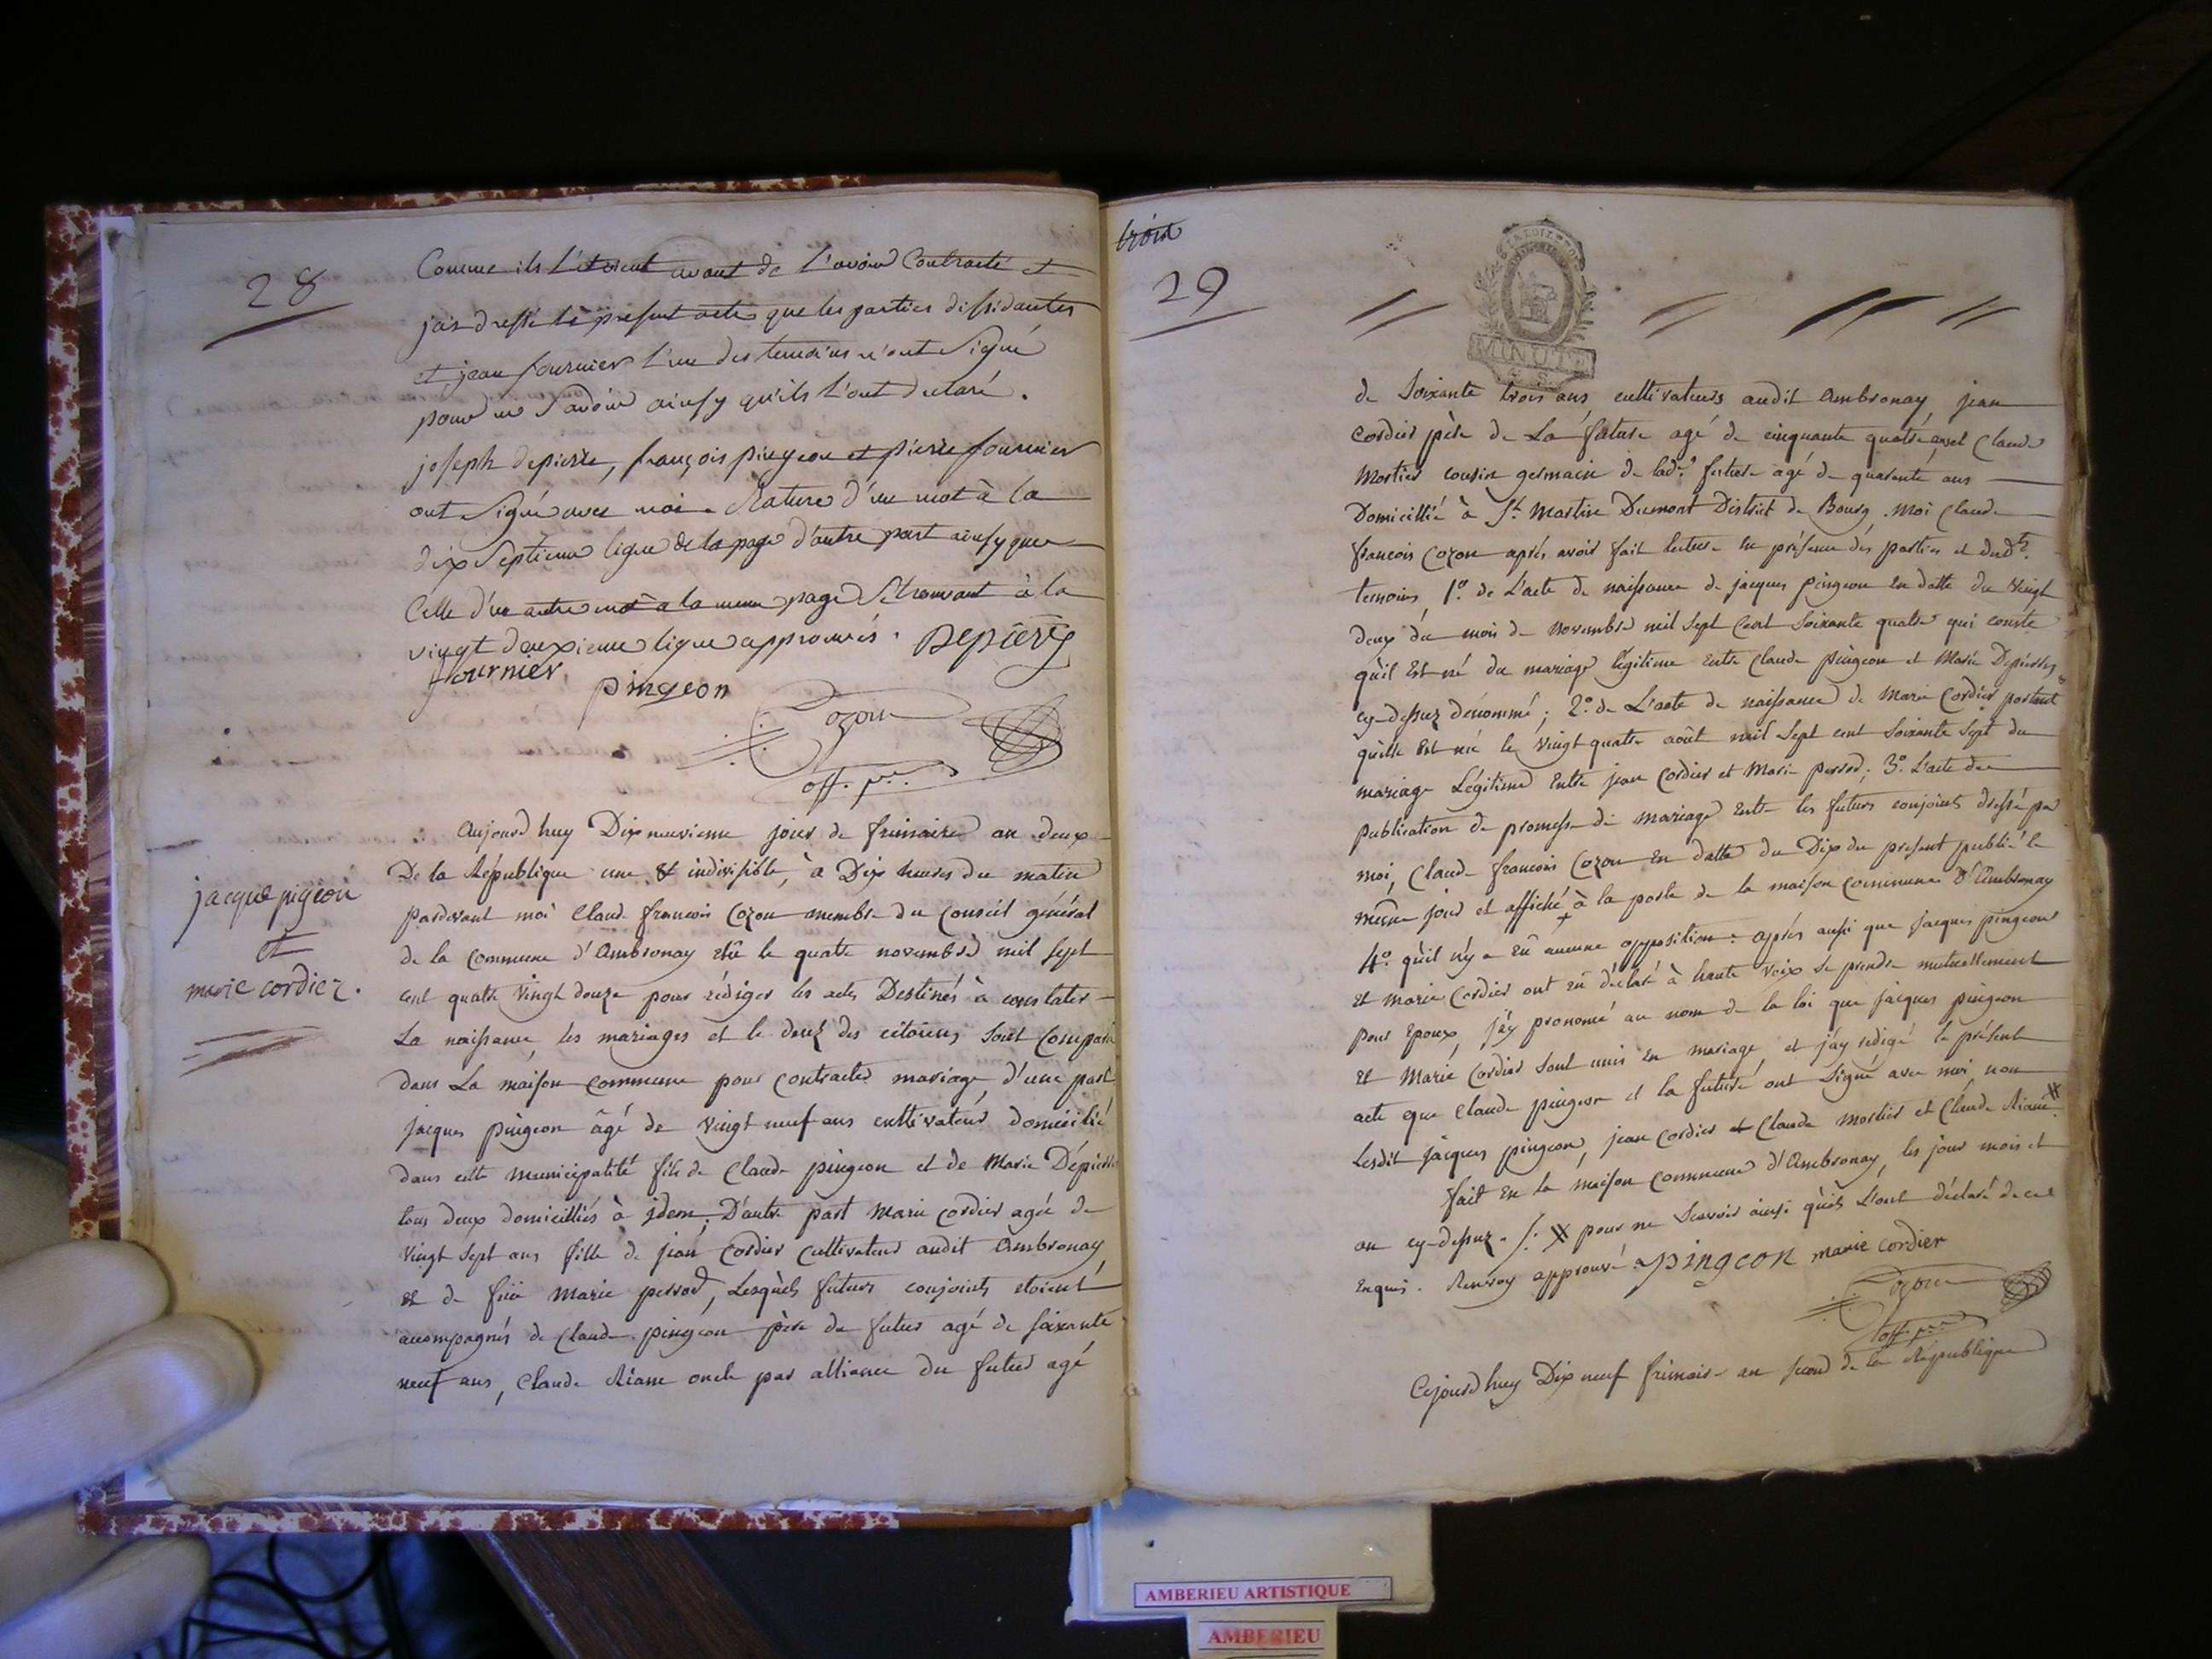 28
Comme ils l'étoient avant de l'avoir Contracté et
j'ai dressé le présent acte que les parties dissidantes
et jean fournier l'un des temoins n'ont Signé
pour ne Savoir ainsy qu'ils l'ont declaré.
joseph depierre, françois pingeon et pierre fournier
ont Signé avec moi. Rature d'un mot à la
dix Septieme ligne de la page d'autre part ainsy que
Celle d'un autre mot a la meme page Se trouvant à la
vingt deuxieme ligne approuvés. Depierre
fournier pingeon
Cozon
off. p.
jacque pigeon
et
marie cordier.
Aujourd huy Dix neuvieme jour de frimaire an deux
De la République une et indivisible, à Dix heures du matin
pardevant moi Claude francois Cozon membre du Conseil général
de la Commune d'Ambronay élû le quatre novembre mil sept
cent quatre vingt douze pour rédiger les actes Destinés à constater
La naissance, les mariages et le decez des citoiens, Sont Comparu
dans La maison commune pour contracter mariage, d'une part
jacques pingeon âgé de vingt neuf ans cultivateur domicilié
dans cette municipalité fils de Claude pingeon et de Marie Dépierre
tous deux domiciliés à idem. D'autre part Marie cordier agée de
vingt Sept ans fille de jean Cordier Cultivateur audit Ambronay
et de füe Marie perrod, Lesquels futurs conjoints etoient
accompagnés de Claude pingeon père du futur agé de soixante
neuf ans, Claude Riane oncle par alliance du futur agé
trois
29
MINUTE
de Soixante trois ans cultivateurs audit Ambronay, jean
Cordier père de La future agé de cinquante quatre ans et Claude
Mortier cousin germain de lad.e future agé de quarante ans
Domicillié à St. Martin Dumont District de Bourg. Moi Claude
francois Cozon après avoir fait lecture en présence des parties et desdts.
temoins, 1.o de L'acte de naissance de jacques pingeon en datte du vingt
deux du mois de Novembre mil Sept Cent Soixante quatre qui conste
qu'il est né du mariage légitime entre Claude pingeon et Marie Depierre
cy-dessuz dénommé; 2.o de L'acte de naissance de Marie Cordier portant
qu'elle est née le vingt quatre août mil Sept cent Soixante Sept du
mariage Légitime entre jean Cordier et Marie perrod; 3.o L'acte de
publication de promesse de mariage entre les futurs conjoints dressé par
moi, Claude francois Cozon en datte du Dix du présent publié le
même jour et affiché à la porte de la maison commune d'Ambronay
4.o qu'il n'y a eû aucune opposition: après aussi que jacques pingeon
et marie Cordier ont eû déclaré à haute voix se prendre mutuellement
pour Epoux, j'ey prononcé au nom de la loi que jacques pingeon
et Marie Cordier Sont unis en mariage, et j'ay rédigé le présent
acte que Claude pingeon et la future ont Signé avec moi non
Lesdit jacques pingeon, jean Cordier et Claude Mortier et Claude Riane
fait en la maison commune d'Ambronay, les jour mois et
an cy-dessuz. pour ne Scavoir ainsi qu'ils l'ont déclaré de ce
enquis. Renvoy approuvé. pingeon marie cordier
Cozon
off. p.
Cejourd huy Dix neuf frimaire an second de la République
AMBERIEU ARTISTIQUE
AMBERIEU